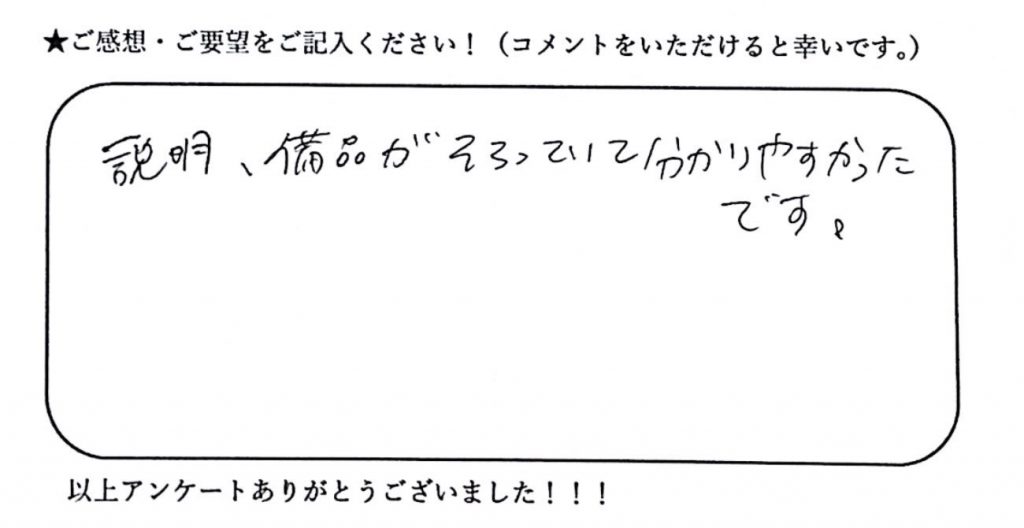 ★ご感想・ご要望をご記入ください！（コメントをいただけると幸いです。）
説明、備品がそろっていて分かりやすかった
です。
以上アンケートありがとうございました！！！